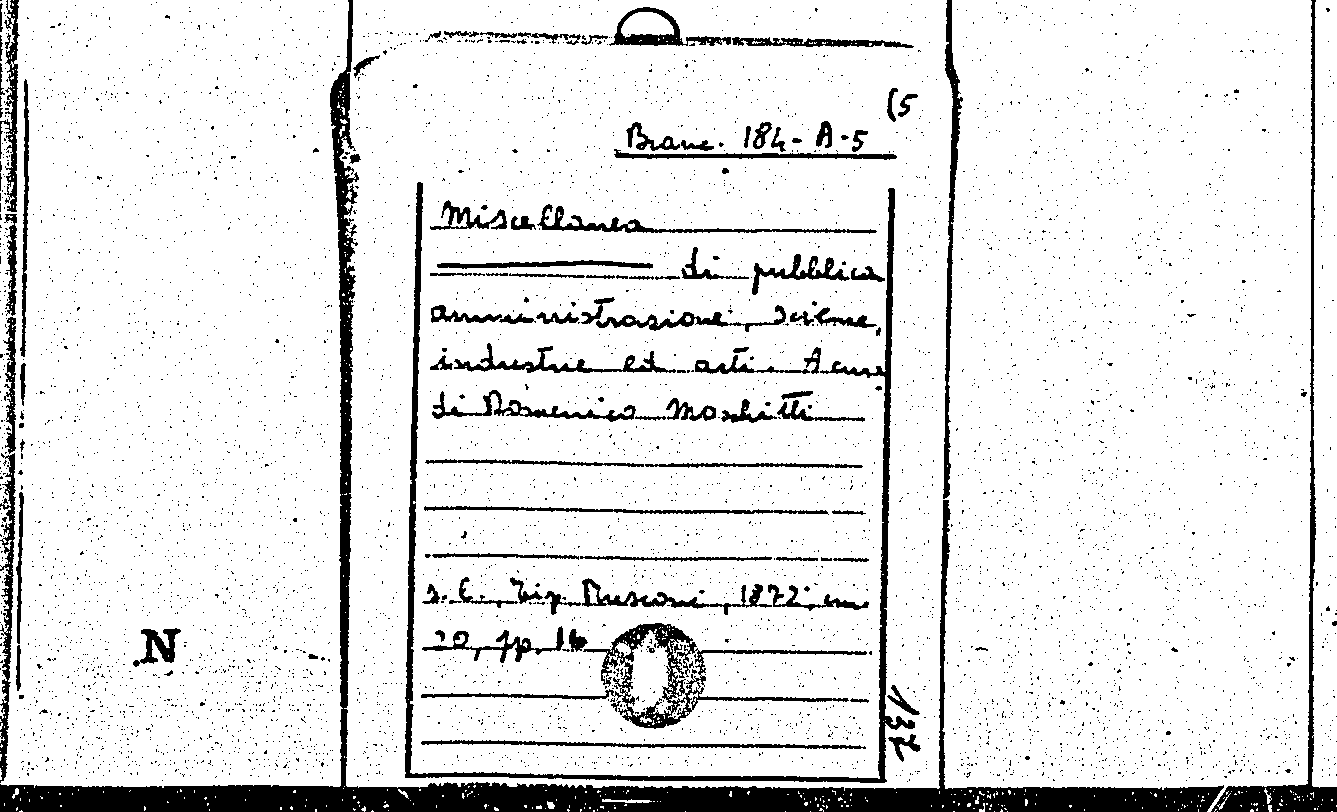 (5
Branc. 184-A-5
Miscellanea
di pubblica
amministrazione, scienze,
industrie ed arti. A cura
di Domenico Moschitti
s. l., Tip. Rusconi, 1872, cm.
20, pp. 16
N
132